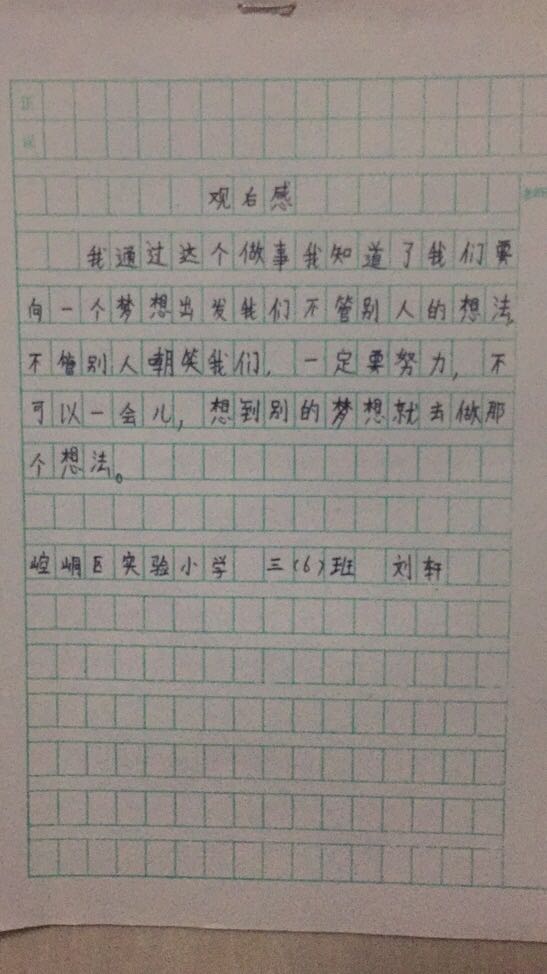 观后感
我通过这个做事我知道了我们要
向一个梦想出发我们不管别人的想法,
不管别人嘲笑我们,一定要努力,不
可以一会儿,想到别的梦想就去做那
个想法。
崆峒区实验小学 三(6)班 刘轩